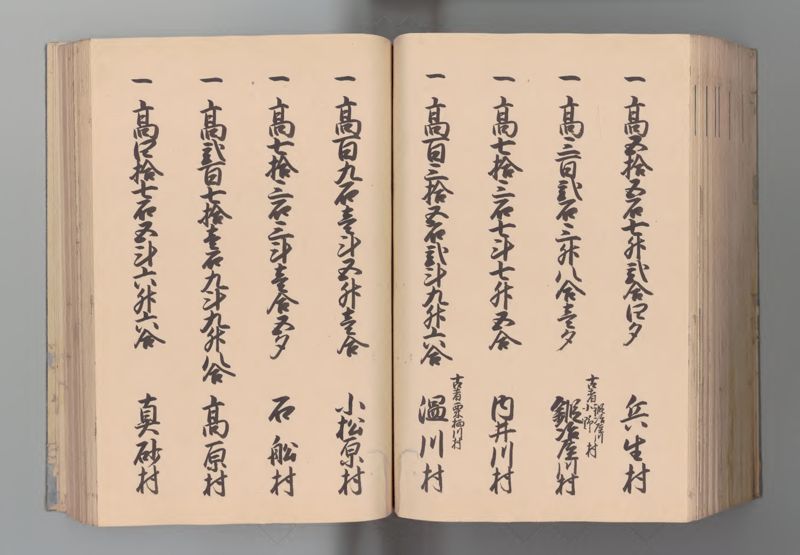 一 高五拾五石七升弐合四夕 兵生村
一 高三百弐石三升八合壱夕 古者鍛冶屋川小野村 鍛冶屋川村
一 高七拾三石七斗七升五合 内井川村
一 高百三拾五石弐斗九升六合 古者栗栖川村 温川村
一 高百九石壱斗五升壱合 小松原村
一 高七拾三石三斗壱合五夕 石船村
一 高弐百七拾壱石九斗九升八合 高原村
一 高四拾七石五斗六升六合 真砂村